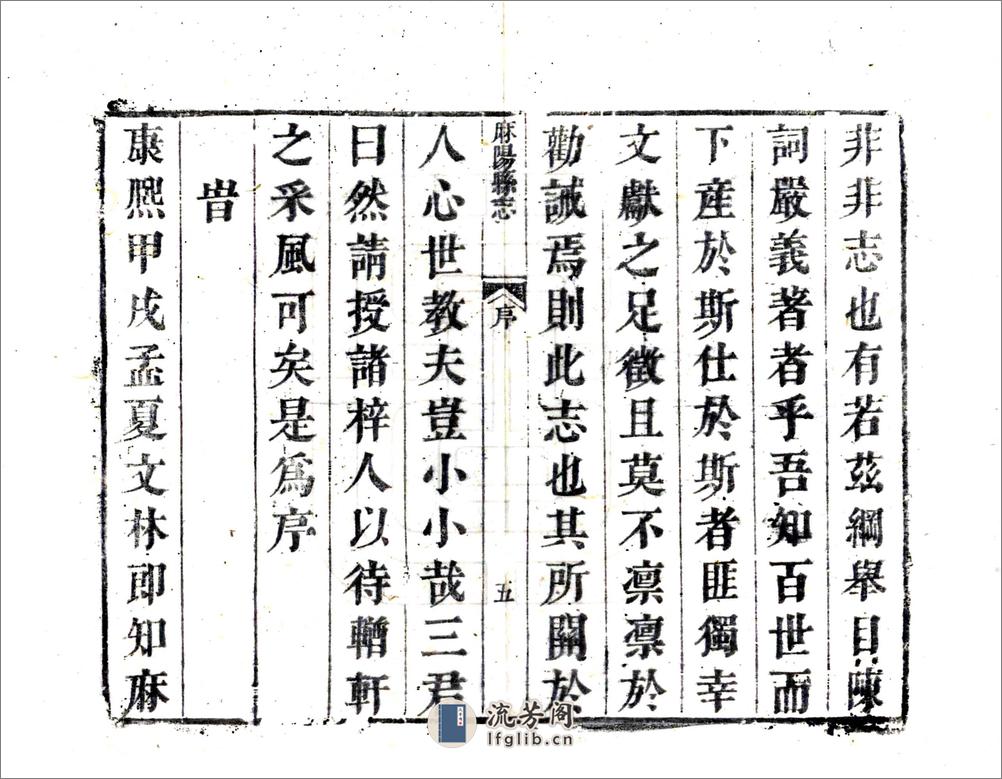 非非志也有若茲綱舉目陳
詞嚴義著者乎吾知百世而
下產於斯仕於斯者匪獨幸
文獻之足徵且莫不凛凛於
勸誡焉則此志也其所關於
麻陽縣志
序
五
人心世教夫豈小小哉三君
曰然請授諸梓人以待輶軒
之采風可矣是爲序
旹
康熙甲戌孟夏文林郎知麻
流芳阁
lfglib.cn